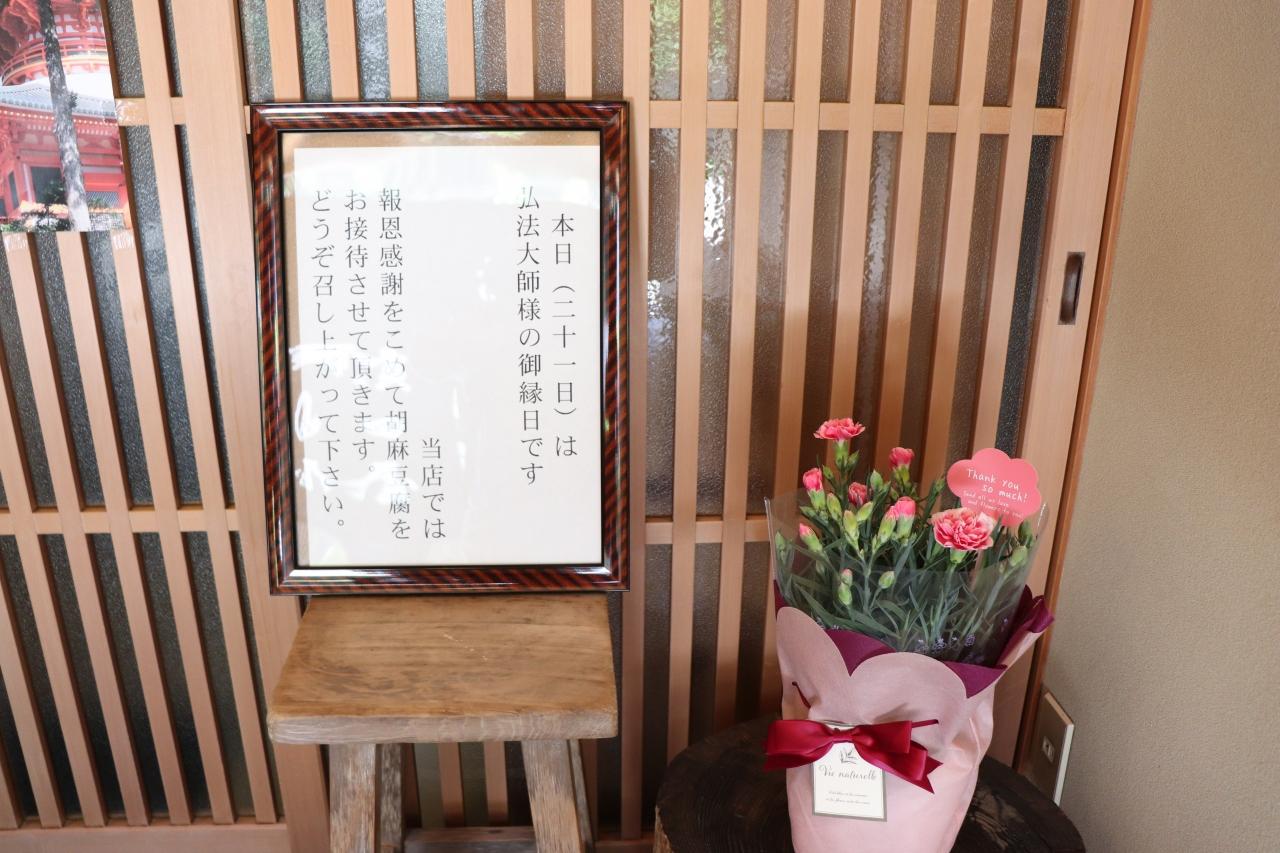 本日（二十一日）は
弘法大師様の御縁日です
当店では
報恩感謝をこめて胡麻豆腐を
お接待させて頂きます。
どうぞ召し上がって下さい。
Thank you
so much!
Send all my love
and flowers to you
Vie naturelle